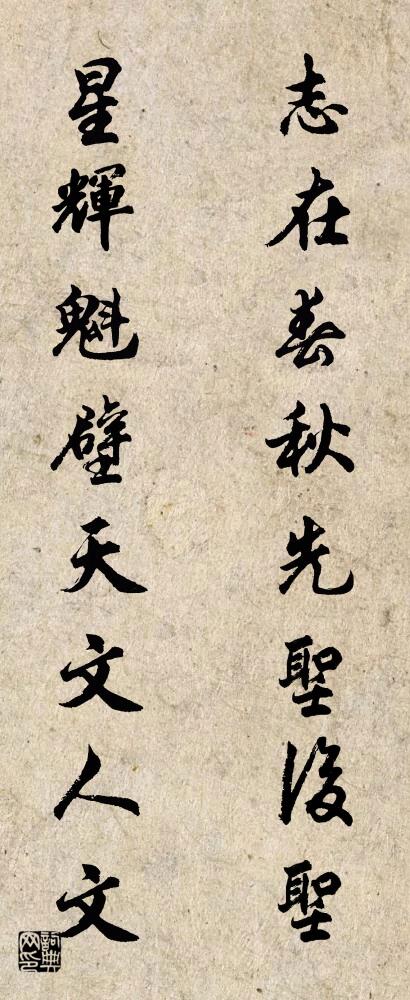 志在春秋先聖後聖
星輝魁壁天文人文
詞典網印